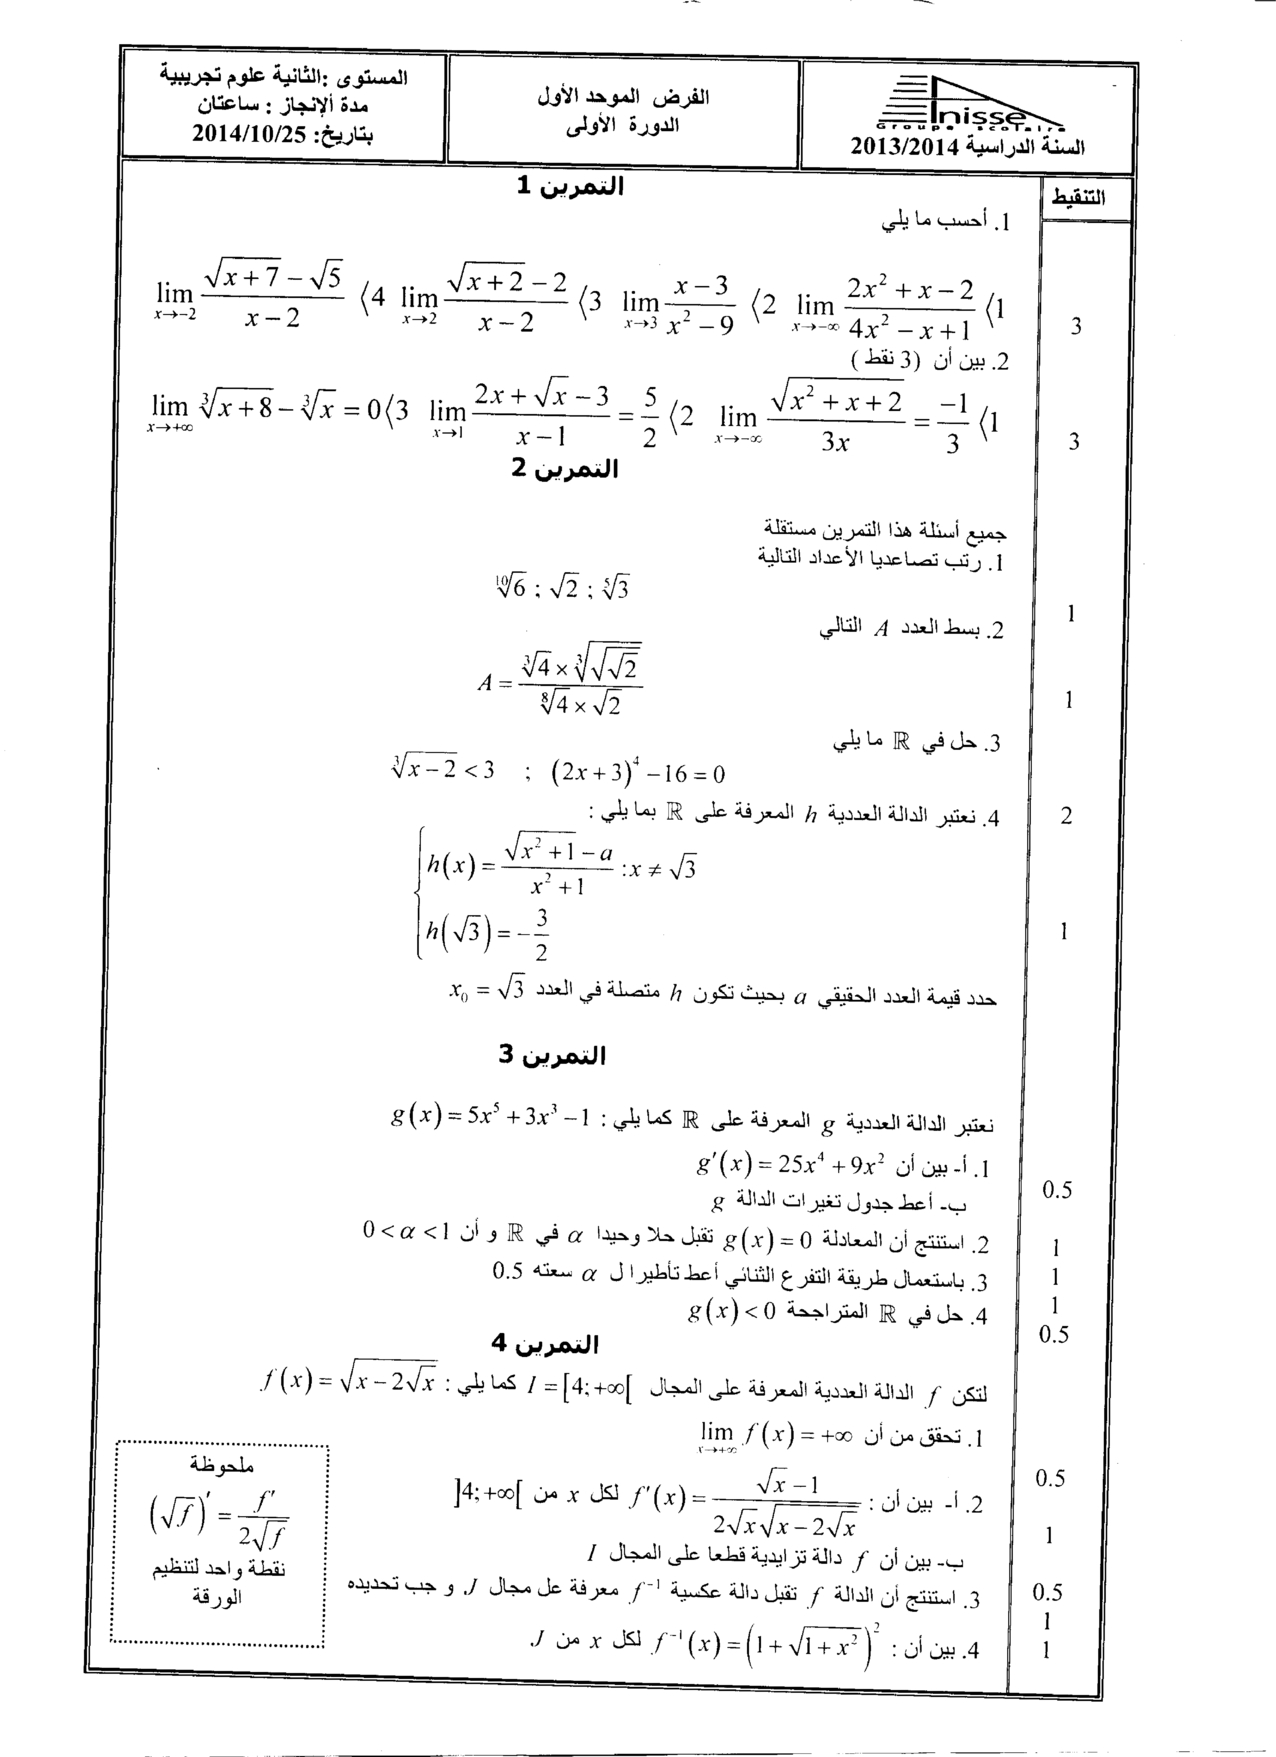 Anisse
Groupe scolaire
السنة الدراسية 2013/2014
الفرض الموحد الأول
الدورة الأولى
المستوى :الثانية علوم تجريبية
مدة الإنجاز : ساعتان
بتاريخ: 2014/10/25
التنقيط
التمرين 1
1. أحسب ما يلي
1⟩ lim_{x→-∞} (2x² + x - 2)/(4x² - x + 1)  2⟩ lim_{x→3} (x - 3)/(x² - 9)  3⟩ lim_{x→2} (√(x+2) - 2)/(x - 2)  4⟩ lim_{x→-2} (√(x+7) - √5)/(x - 2)
3
2. بين أن (3 نقط )
1⟩ lim_{x→-∞} √(x² + x + 2)/(3x) = -1/3  2⟩ lim_{x→1} (2x + √x - 3)/(x - 1) = 5/2  3⟩ lim_{x→+∞} ∛(x+8) - ∛x = 0
3
التمرين 2
جميع أسئلة هذا التمرين مستقلة
1. رتب تصاعديا الأعداد التالية
¹⁰√6 ; √2 ; ⁵√3
1
2. بسط العدد A التالي
A = (∛4 × ∛(√(√2)))/(⁸√4 × √2)
1
3. حل في ℝ ما يلي
∛(x-2) < 3 ; (2x+3)⁴ - 16 = 0
4. نعتبر الدالة العددية h المعرفة على ℝ بما يلي :
2
h(x) = (√(x²+1) - a)/(x²+1) : x ≠ √3
h(√3) = -3/2
1
حدد قيمة العدد الحقيقي a بحيث تكون h متصلة في العدد x₀ = √3
التمرين 3
نعتبر الدالة العددية g المعرفة على ℝ كما يلي : g(x) = 5x⁵ + 3x³ - 1
1. أ- بين أن g'(x) = 25x⁴ + 9x²
0.5
ب- أعط جدول تغيرات الدالة g
1
2. استنتج أن المعادلة g(x) = 0 تقبل حلا وحيدا α في ℝ و أن 0 < α < 1
1
3. باستعمال طريقة التفرع الثنائي أعط تأطيرا ل α سعته 0.5
1
4. حل في ℝ المتراجحة g(x) < 0
0.5
التمرين 4
لتكن f الدالة العددية المعرفة على المجال I = [4; +∞[ كما يلي : f(x) = √(x - 2√x)
1. تحقق من أن lim_{x→+∞} f(x) = +∞
0.5
2. أ- بين أن : f'(x) = (√x - 1)/(2√x√(x - 2√x)) لكل x من ]4; +∞[
1
ب- بين أن f دالة تزايدية قطعا على المجال I
0.5
3. استنتج أن الدالة f تقبل دالة عكسية f⁻¹ معرفة عل مجال J, و جب تحديده
1
4. بين أن : f⁻¹(x) = (1 + √(1 + x²))² لكل x من J.
1
ملحوظة
(√f)' = f'/(2√f)
نقطة واحد لتنظيم
الورقة